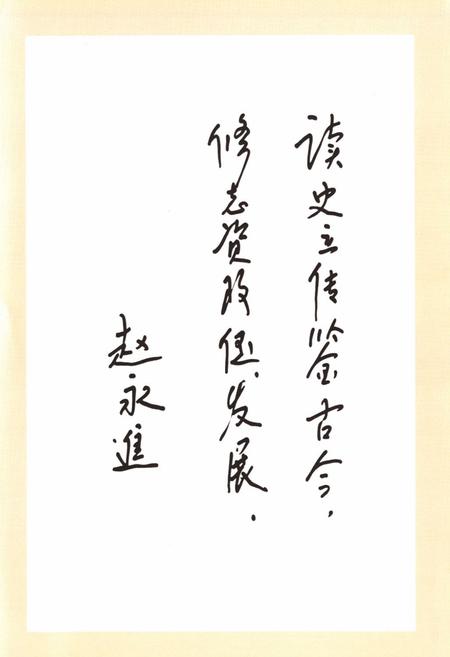 读史立传鉴古今，
修志资政促发展.
赵永進